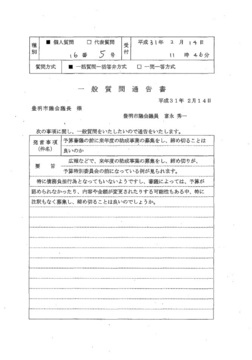 種別 ■ 個人質問 □ 代表質問 受付 平成31年 2月14日
16番 5号 11時46分
質問方式 ■ 一括質問一括答弁方式 □ 一問一答方式
一般質問通告書
平成31年 2月14日
豊明市議会議長 様
豊明市議会議員 富永 秀一
次の事項に関し、一般質問をいたしたいので通告をいたします。
発言事項(件名) 予算審議の前に来年度の助成事業の募集をし、締め切ることは
良いのか
要旨 広報などで、来年度の助成事業の募集をし、締め切りが、
予算特別委員会の前になっている例が見られます。
特に債務負担行為となってもいないようですし、審議によっては、予算が
認められなかったり、内容や金額が変更されたりする可能性もある中、特に
注釈もなく募集し、締め切ることは良いのでしょうか。